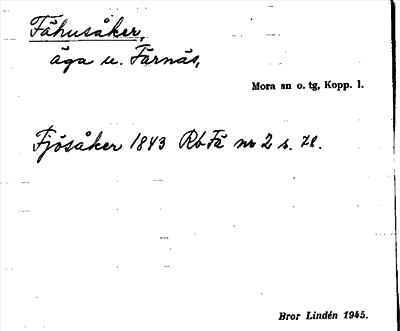 Fähusåker,
äga u. Färnäs,
Mora sn o. tg, Kopp. l.
Fjösåker 1843 Rb Fä nr 2 s. 78.
Bror Lindén 1945.